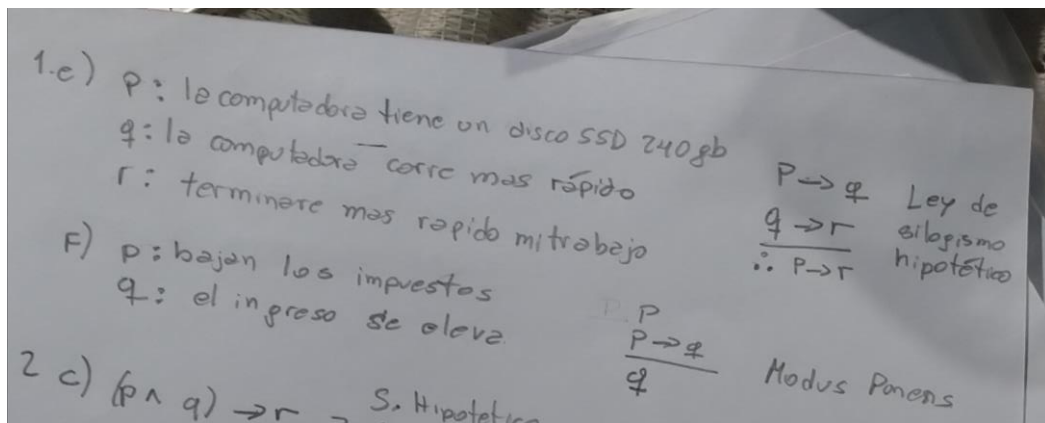 1.e) p: la computadora tiene un disco SSD 240gb
q: la computadora corre mas rápido
r: terminare mas rapido mi trabajo
p → q Ley de
q → r silogismo
∴ p → r hipotético
F) p: bajan los impuestos
q: el ingreso se eleva.
p
p → q
q Modus Ponens
2 c) (p ∧ q) → r S. Hipotetico